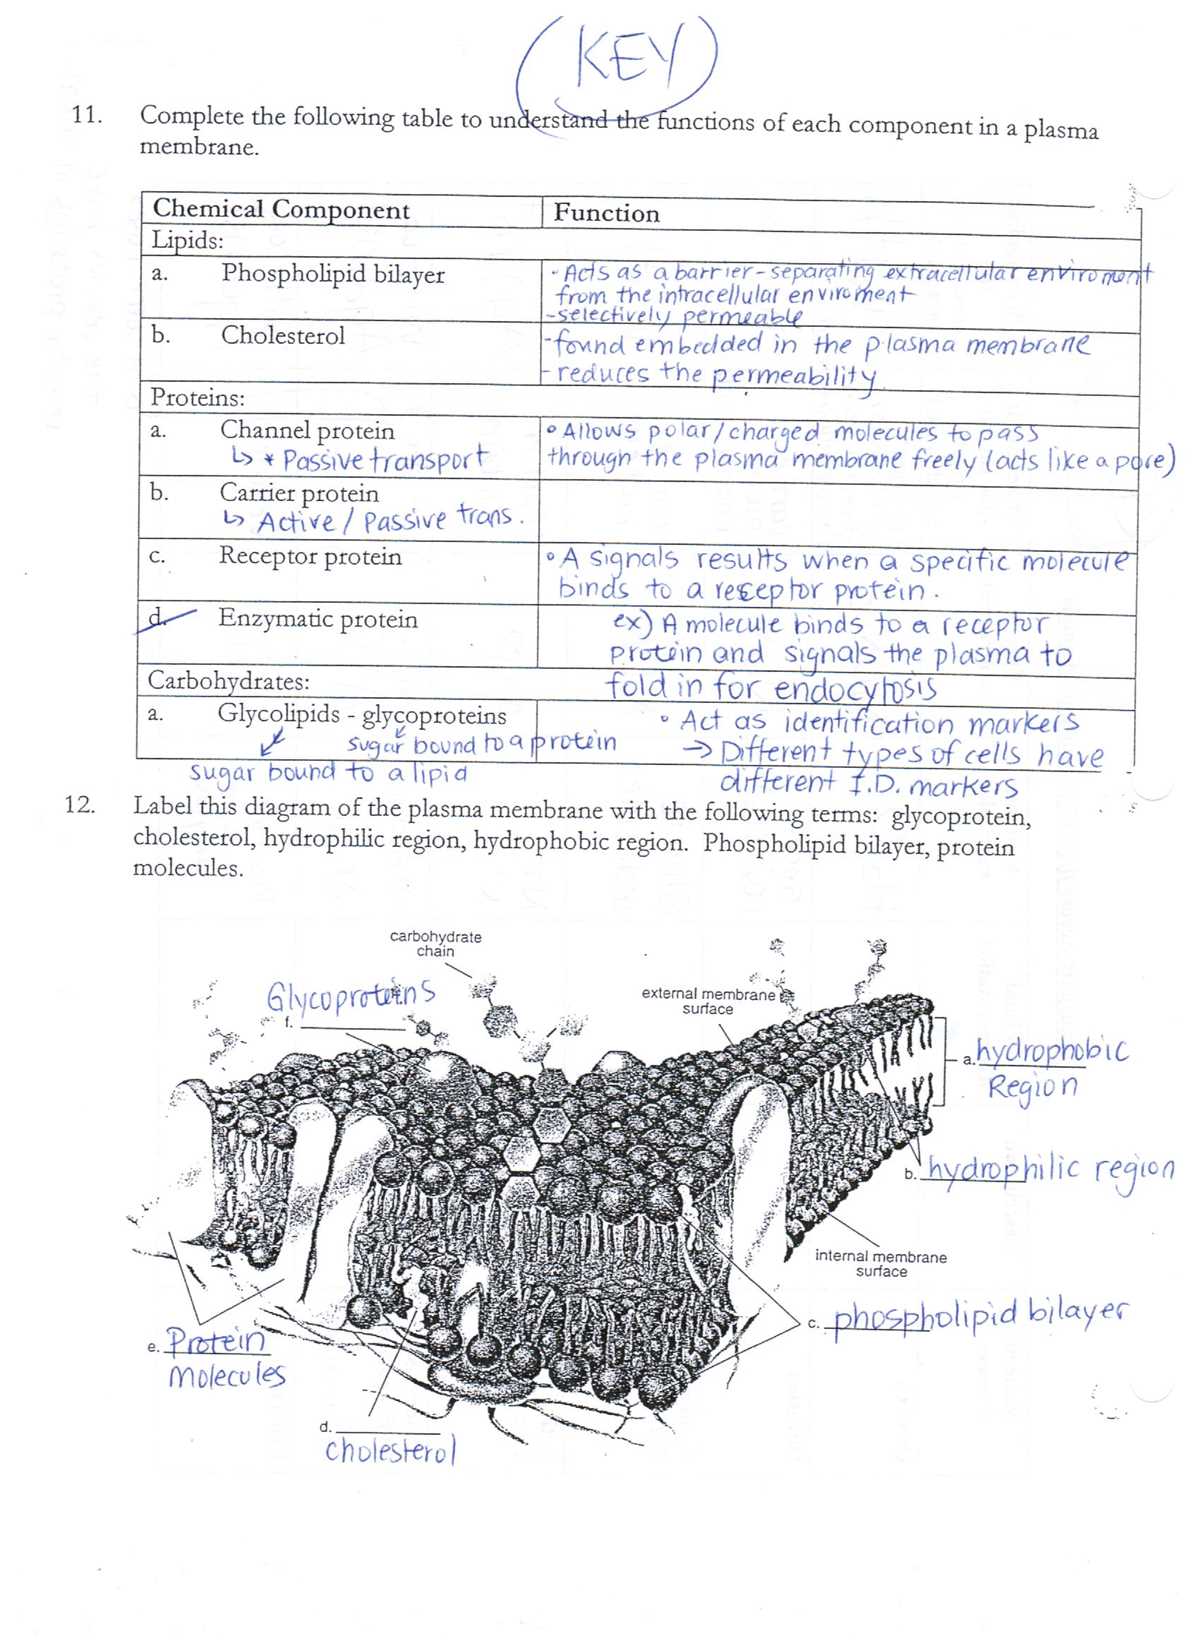 KEY
11. Complete the following table to understand the functions of each component in a plasma
membrane.
Chemical Component Function
Lipids:
a. Phospholipid bilayer
- Acts as a barrier - separating extracellular enviroment
from the intracellular enviroment
- selectively permeable
b. Cholesterol
- found embedded in the plasma membrane
- reduces the permeability
Proteins:
a. Channel protein
↳ * Passive transport
• Allows polar/charged molecules to pass
through the plasma membrane freely (acts like a pore)
b. Carrier protein
↳ Active / Passive trans.
c. Receptor protein
• A signals results when a specific molecule
binds to a receptor protein.
d. Enzymatic protein
ex) A molecule binds to a receptor
protein and signals the plasma to
fold in for endocytosis
Carbohydrates:
a. Glycolipids - glycoproteins
sugar bound to a protein
sugar bound to a lipid
• Act as identification markers
→ Different types of cells have
different I.D. markers
12. Label this diagram of the plasma membrane with the following terms: glycoprotein,
cholesterol, hydrophilic region, hydrophobic region. Phospholipid bilayer, protein
molecules.
carbohydrate
chain
Glycoproteins
f.
external membrane
surface
a. hydrophobic
Region
b. hydrophilic region
internal membrane
surface
c. phospholipid bilayer
e. Protein
molecules
d.
cholesterol